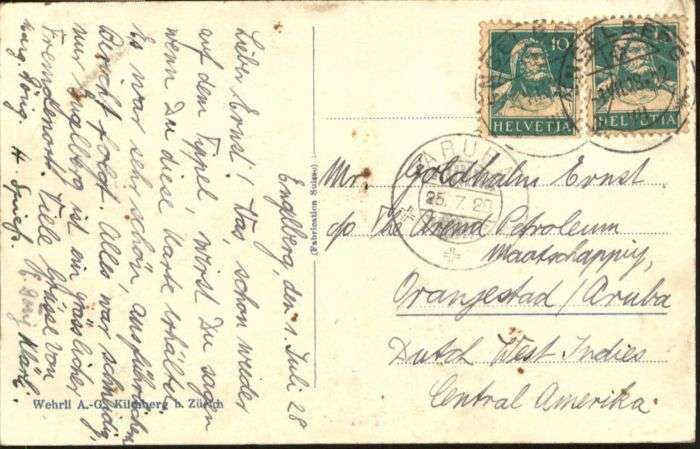 Engelberg, den 1. Juli 28
Lieber Ernst! Was schon wieder
auf dem Tippel, wirst Du sagen
wenn Du diese Karte erhältst.
Es war sehr schön, ausführlichen
Bericht folgt. Alles war schneidig,
nur Engelberg ist ein grässlicher
Fremdenort. Viele Grüsse von
(Fabrication Suisse)
Wehrli A.-G., Kilchberg b. Zürich
10
HELVETIA
HELVETIA
ENGELBERG
ARUBA
25. 7. 28
Mr. Goldhahn Ernst
c/o The Arend Petroleum
Maatschappij,
Oranjestad / Aruba
Dutch West Indies
Central Amerika.